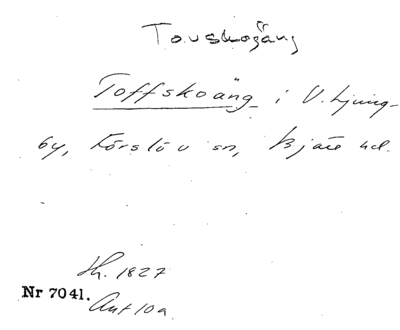 Tovskogäng
Toffskoäng i V. Ljung-
by, Förslöv sn, Bjäre hd.
Sh. 1827
Nr 7041.
Ant 10a